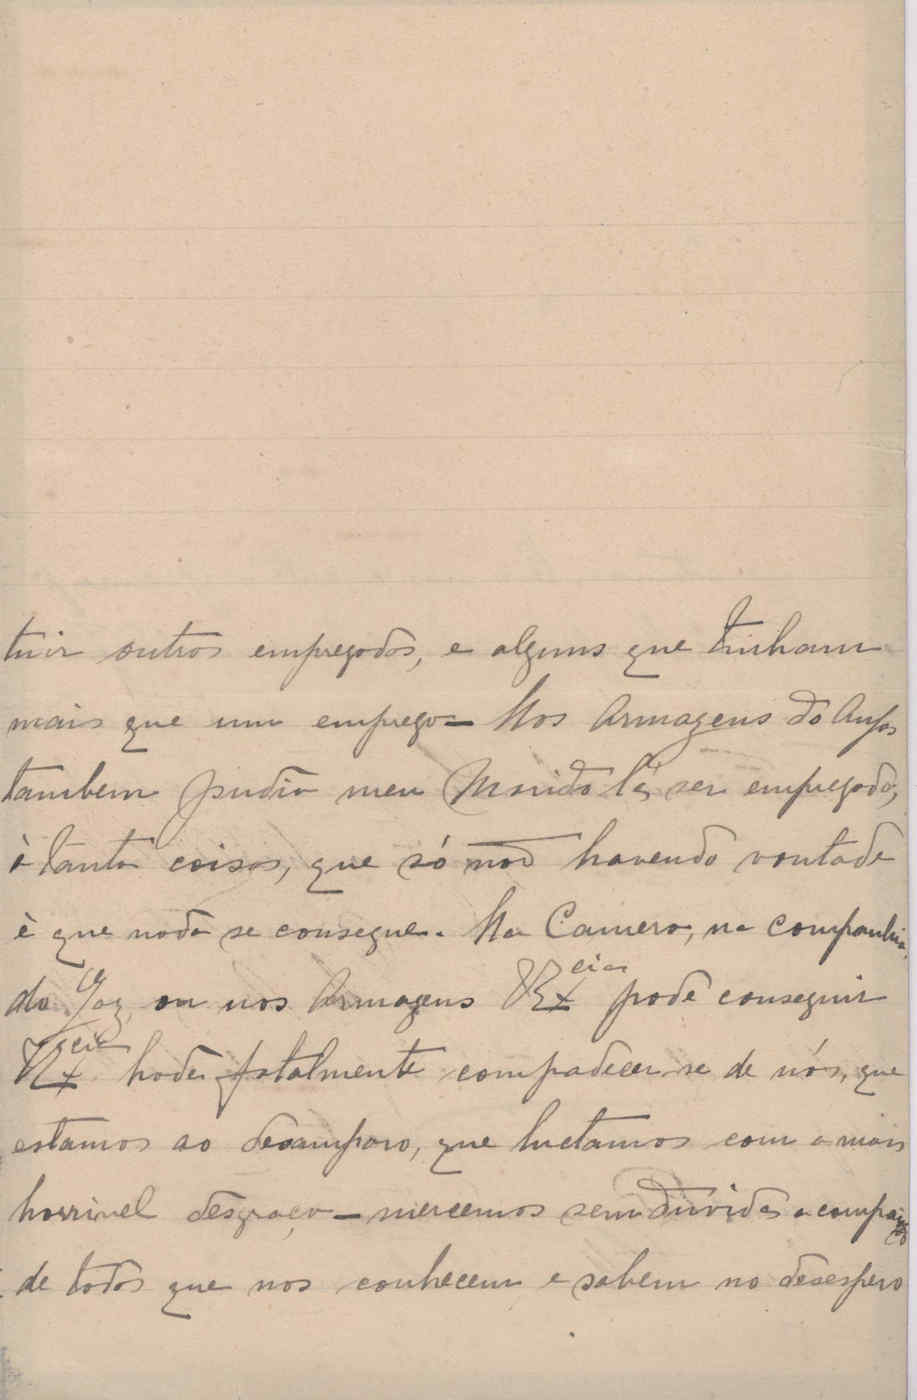 tuir outros empregados, e alguns que tinham
mais que um emprego – Nos Armazens do Anjos
tambem pudia meu Marido lá ser empregado,
è tanta coisas, que só não havendo vontade
è que nada se consegue. Na Camera, na Companhia
do Gaz, ou nos Armagens V Ex.cia pode conseguir
V Ex.cia hode fatalmente compadecer-se de nós, que
estamos ao desamparo, que luctamos com a mais
horrivel desgraça – mercemos sem duvida a compaixão
de todos que nos conhecem e sabem no desespero